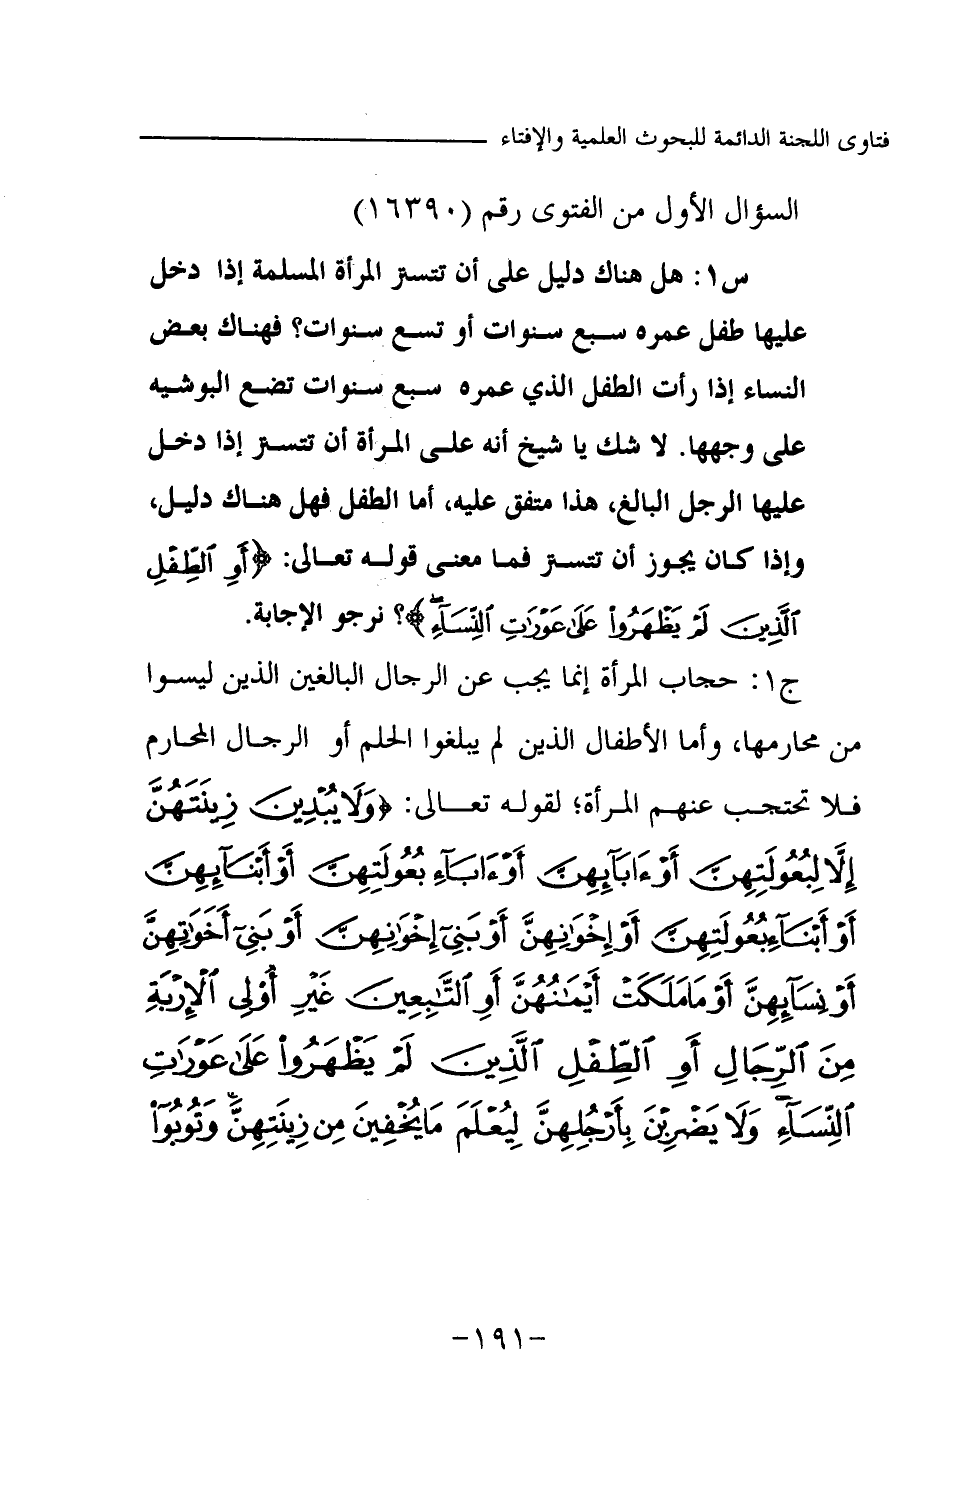 فتاوى اللجنة الدائمة للبحوث العلمية والإفتاء
السؤال الأول من الفتوى رقم (١٦٣٩٠)
س١: هل هناك دليل على أن تتستر المرأة المسلمة إذا دخل
عليها طفل عمره سبع سنوات أو تسع سنوات؟ فهناك بعض
النساء إذا رأت الطفل الذي عمره سبع سنوات تضع البوشيه
على وجهها. لا شك يا شيخ أنه على المرأة أن تتستر إذا دخل
عليها الرجل البالغ، هذا متفق عليه، أما الطفل فهل هناك دليل،
وإذا كان يجوز أن تتستر فما معنى قوله تعالى: ﴿أَوِ ٱلطِّفْلِ
ٱلَّذِينَ لَمْ يَظْهَرُوا۟ عَلَىٰ عَوْرَٰتِ ٱلنِّسَآءِ ۖ﴾؟ نرجو الإجابة.
ج١: حجاب المرأة إنما يجب عن الرجال البالغين الذين ليسوا
من محارمها، وأما الأطفال الذين لم يبلغوا الحلم أو الرجال المحارم
فلا تحتجب عنهم المرأة؛ لقوله تعالى: ﴿وَلَا يُبْدِينَ زِينَتَهُنَّ
إِلَّا لِبُعُولَتِهِنَّ أَوْ ءَابَآئِهِنَّ أَوْ ءَابَآءِ بُعُولَتِهِنَّ أَوْ أَبْنَآئِهِنَّ
أَوْ أَبْنَآءِ بُعُولَتِهِنَّ أَوْ إِخْوَٰنِهِنَّ أَوْ بَنِىٓ إِخْوَٰنِهِنَّ أَوْ بَنِىٓ أَخَوَٰتِهِنَّ
أَوْ نِسَآئِهِنَّ أَوْ مَا مَلَكَتْ أَيْمَٰنُهُنَّ أَوِ ٱلتَّٰبِعِينَ غَيْرِ أُو۟لِى ٱلْإِرْبَةِ
مِنَ ٱلرِّجَالِ أَوِ ٱلطِّفْلِ ٱلَّذِينَ لَمْ يَظْهَرُوا۟ عَلَىٰ عَوْرَٰتِ
ٱلنِّسَآءِ ۖ وَلَا يَضْرِبْنَ بِأَرْجُلِهِنَّ لِيُعْلَمَ مَا يُخْفِينَ مِن زِينَتِهِنَّ ۚ وَتُوبُوٓا۟
-١٩١-